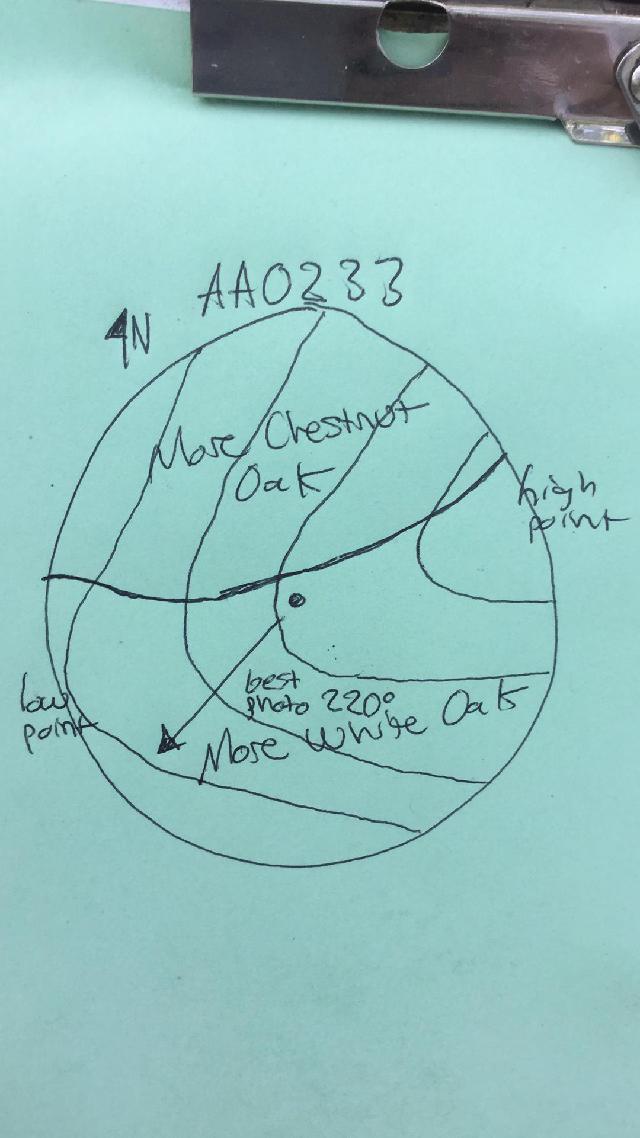 AA0233
N
More Chestnut
Oak
high
point
best
photo 220°
low
point
More White Oak